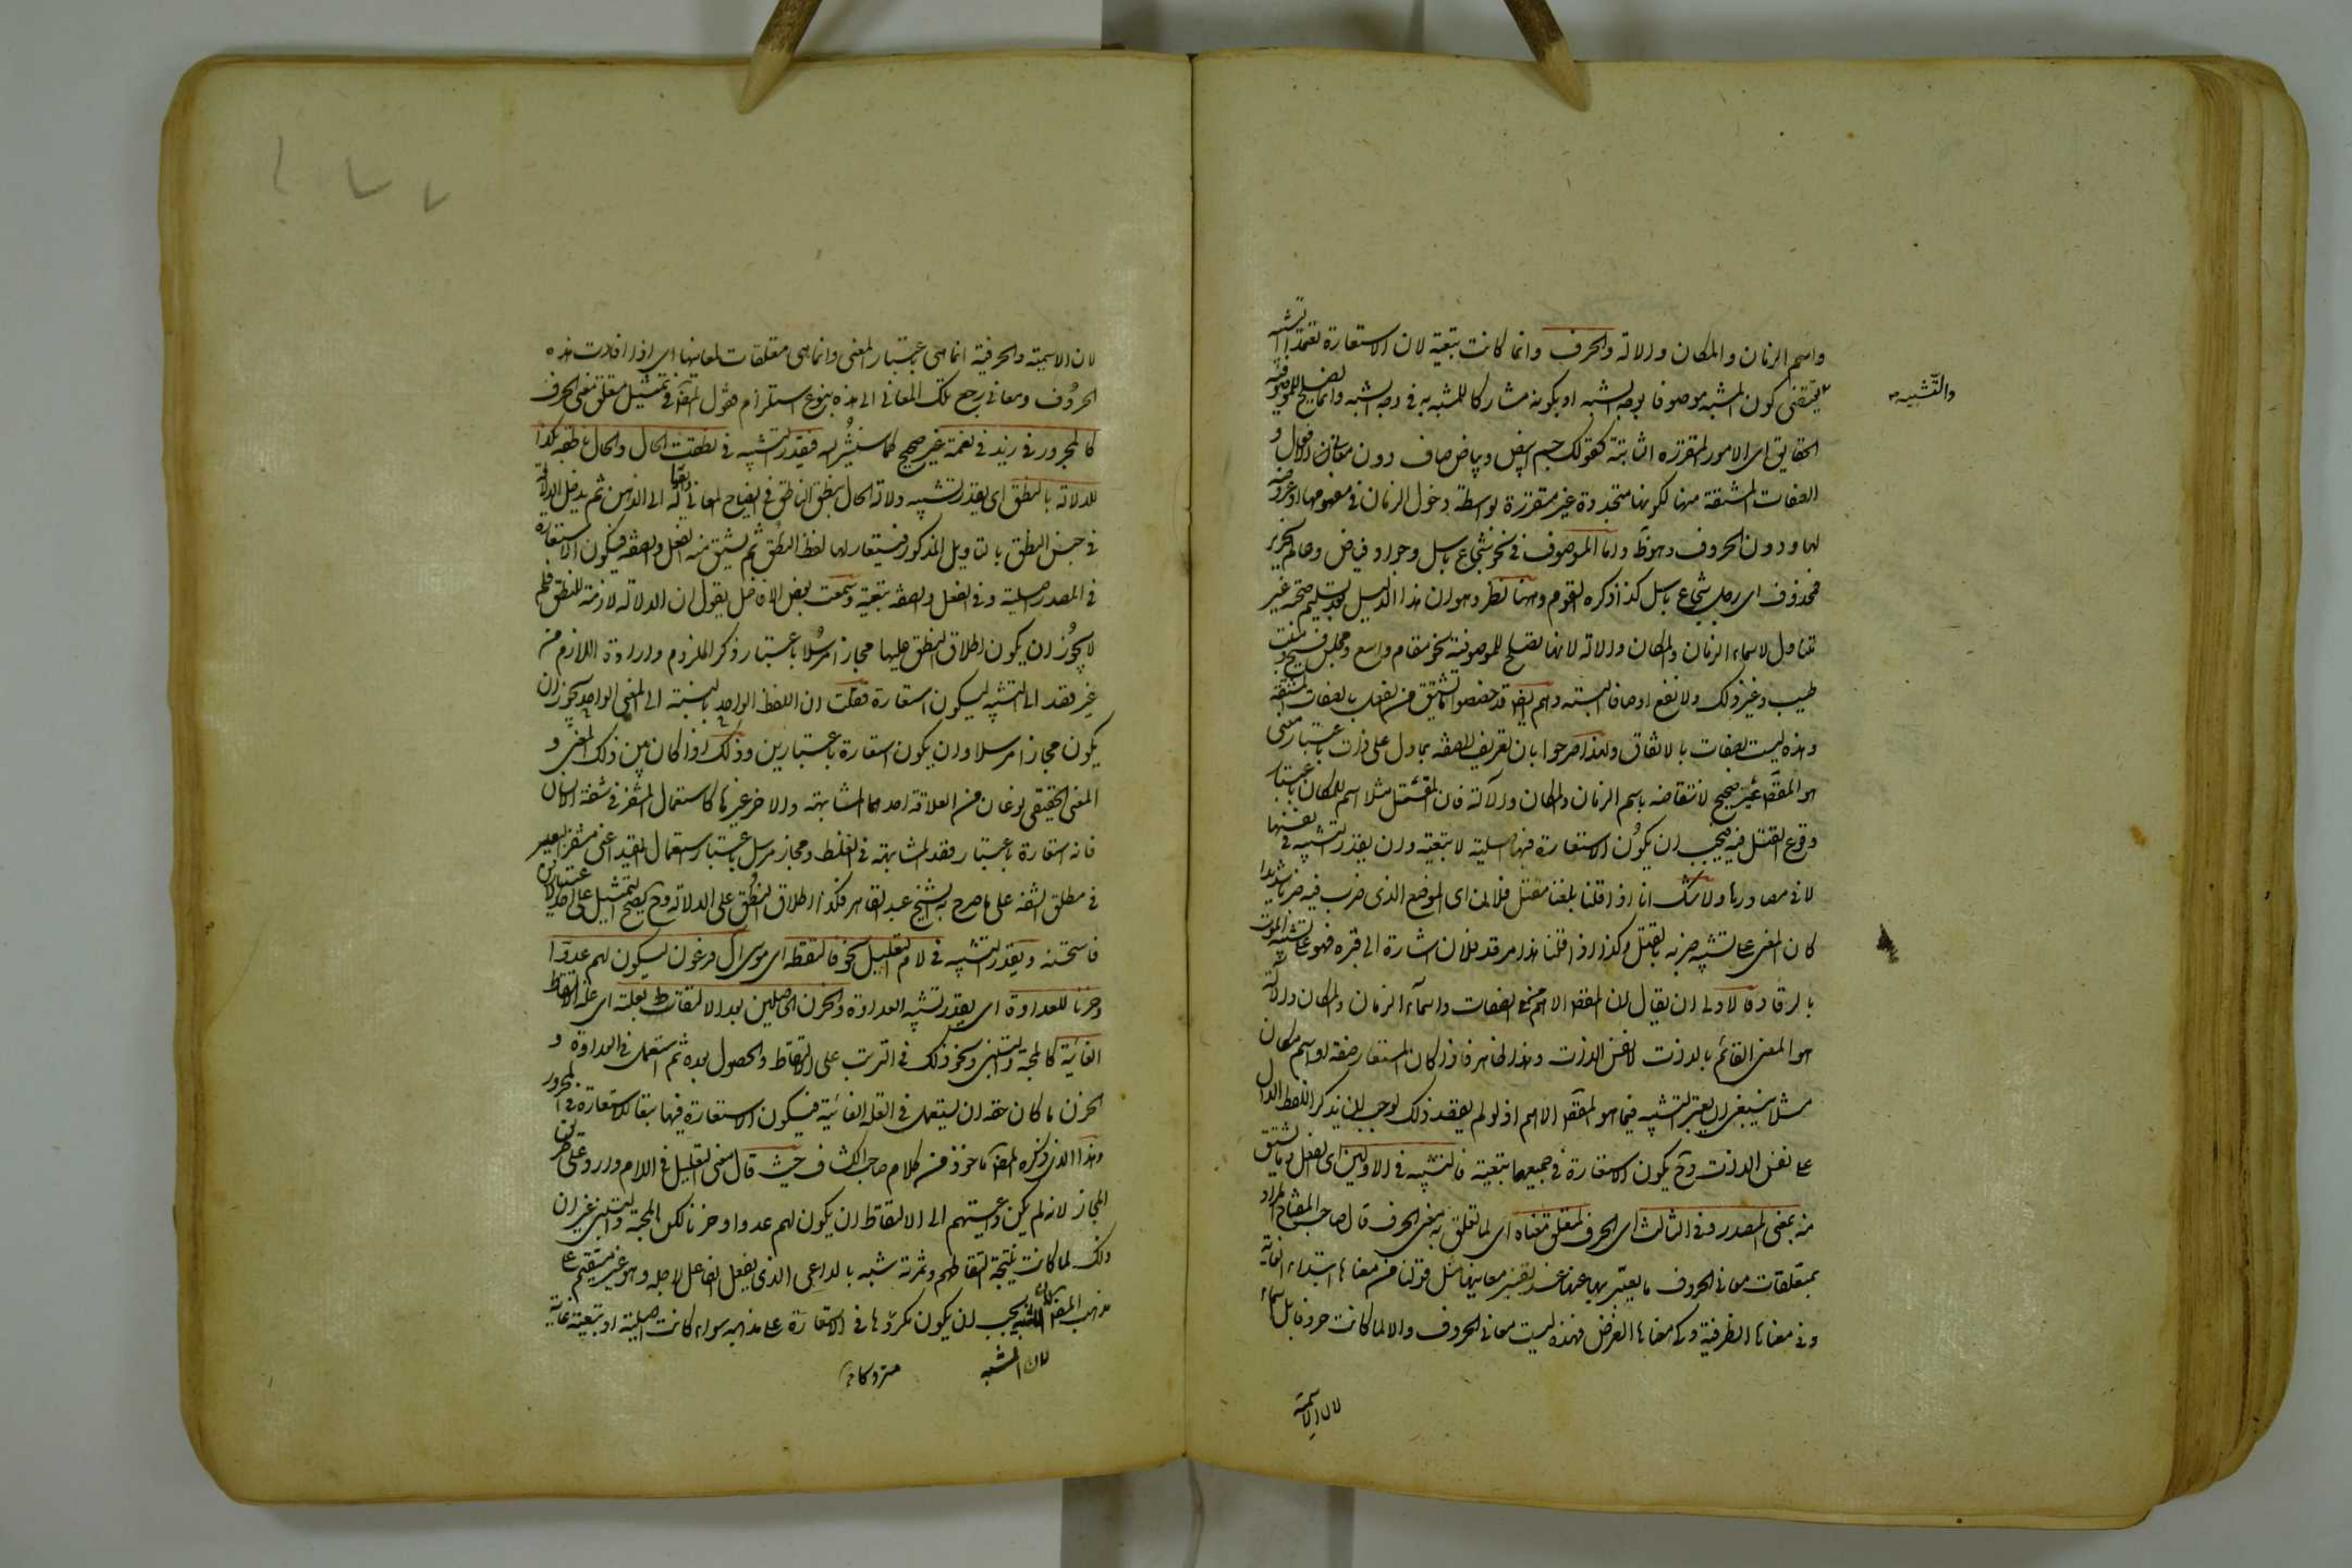 واسم الزمان والمكان والالة والحرف وانما كانت تبعية لان الاستعارة تعتمد التشبيه
والتشبيه
يقتضى كون المشبه موصوفا بوجه الشبه او بكونه مشاركا للمشبه به فى وجه الشبه وانما يصلح للموصوفية
الحقايق اى الامور المتقررة الثابتة كقولك جسم ابيض وبياض صاف دون معانى الافعال و
الصفات المشتقة منها لكونها متجددة غير متقررة بواسطة دخول الزمان فى مفهومها او عروضه
لها ودون الحروف وهو ظ واما الموصوف فى نحو شجاع باسل وجواد فياض وعالم نحرير
فمحذوف اى رجل شجاع باسل كذا ذكره القوم وههنا نظر وهو ان هذا الدليل بعد تسليم صحته غير
متناول لاسماء الزمان والمكان والالة لانها تصلح للموصوفية نحو مقام واسع ومجلس فسيح ومنبت
طيب وغير ذلك ولا تقع اوصافا البتة وهم ايضا قد خصصوا ما يشتق من الفعل بالصفات المشتقة
وهذه ليست بصفات بالاتفاق ولهذا صرحوا بان تعريف الصفة بما دل على ذات باعتبار معنى
هو المقصود غير صحيح لانتقاضه باسم الزمان والمكان والآلة فان المقتل مثلا اسم للمكان باعتبار
وقوع القتل فيه فيجب ان يكون الاستعارة فيها اصلية لا تبعية وان يقدر التشبيه فى نفسها
لا فى مصادرها ولا شك انا اذا قلنا بلغنا مقتل فلان اى الموضع الذى ضرب فيه ضربا شديدا
كان المعنى على تشبيه ضربه بالقتل وكذا اذا قلنا هذا مرقد فلان اشارة الى قبره فهو على تشبيه الموت
بالرقاد فالاولى ان يقال ان المقصود الاهم فى الصفات واسماء الزمان والمكان والآلة
هو المعنى القائم بالذات لا نفس الذات وهذا ظاهر فاذا كان المستعار صفة او اسم مكان
مثلا ينبغى ان يعتبر التشبيه فيما هو المقصود الاهم اذ لو لم يقصد ذلك لوجب ان يذكر اللفظ الدال
على نفس الذات وح يكون الاستعارة فى جميعها تبعية فالتشبيه فى الاولين اى الفعل وما يشتق
منه بمعنى المصدر وفى الثالث اى الحرف لمتعلق معناه اى لما تعلق به معنى الحرف قال صاحب المفتاح المراد
بمتعلقات معانى الحروف ما يعبر بها عنها عند تفسير معانيها مثل قولنا من معناها ابتداء الغاية
وفى معناها الظرفية وكى معناها الغرض فهذه ليست معانى الحروف والا لما كانت حروفا بل اسماء
لان الاسمية
لان الاسمية والحرفية انما هى باعتبار المعنى وانما هى متعلقات لمعانيها اى اذا افادت هذه
الحروف معانى رجع تلك المعانى الى هذه بنوع استلزام فقول المصنف فى تمثيل متعلق معنى الحرف
كالمجرور فى زيد فى نعمة غير صحيح كما سنشير اليه فيقدر التشبيه فى نطقت الحال والحال ناطقة بكذا
للدلالة بالنطق اى يقدر تشبيه دلالة الحال بنطق الناطق فى ايضاح المعانى وايصاله الى الذهن ثم يدخل الدلالة
فى جنس النطق بالتاويل المذكور فيستعار لها لفظ النطق ثم يشتق منه الفعل والصفة فيكون الاستعارة
فى المصدر اصلية وفى الفعل والصفة تبعية وسمعت بعض الافاضل يقول ان الدلالة لازمة للنطق فلم
لا يجوز ان يكون اطلاق النطق عليها مجازا مرسلا باعتبار ذكر الملزوم وارادة اللازم من
غير قصد الى التشبيه ليكون استعارة فقلت ان اللفظ الواحد بالنسبة الى المعنى الواحد يجوز ان
يكون مجازا مرسلا وان يكون استعارة باعتبارين وذلك اذا كان بين ذلك المعنى و
المعنى الحقيقى نوعان من العلاقة احدهما المشابهة والاخر غيرها كاستعمال المشفر فى شفة الانسان
فانه استعارة باعتبار قصد المشابهة فى الغلظ ومجاز مرسل باعتبار استعمال المقيد اعنى مشفر البعير
فى مطلق الشفة على ما صرح به الشيخ عبد القاهر فكذا اطلاق النطق على الدلالة وح يصح التمثيل على احد الاعتبارين
فاستحسنه ويقدر التشبيه فى لام التعليل نحو فالتقطه اى موسى ال فرعون ليكون لهم عدوا
وحزنا للعداوة اى يقدر تشبيه العداوة والحزن الحاصلين بعد الالتقاط بعلته اى علة الالتقاط
الغائية كالمحبة والتبنى ونحو ذلك فى الترتب على الالتقاط والحصول بعده ثم استعمل فى العداوة و
الحزن ما كان حقه ان يستعمل فى العلة الغائية فيكون الاستعارة فيها تبعا للاستعارة فى المجرور
وهذا الذى ذكره المصنف ماخوذ من كلام صاحب الكشاف حيث قال معنى التعليل فى اللام وارد على طريق
المجاز لانه لم يكن داعيتهم الى الالتقاط ان يكون لهم عدوا وحزنا لكن المحبة والتبنى غير ان
ذلك لما كانت نتيجة التقاطهم وثمرته شبه بالداعى الذى يفعل الفاعل لاجله وهو غير مستقيم على
مذهب المصنف لان المشبه يجب ان يكون متروكا فى الاستعارة على مذهبه سواء كانت اصلية او تبعية غاية
لان المشبه
متروكا